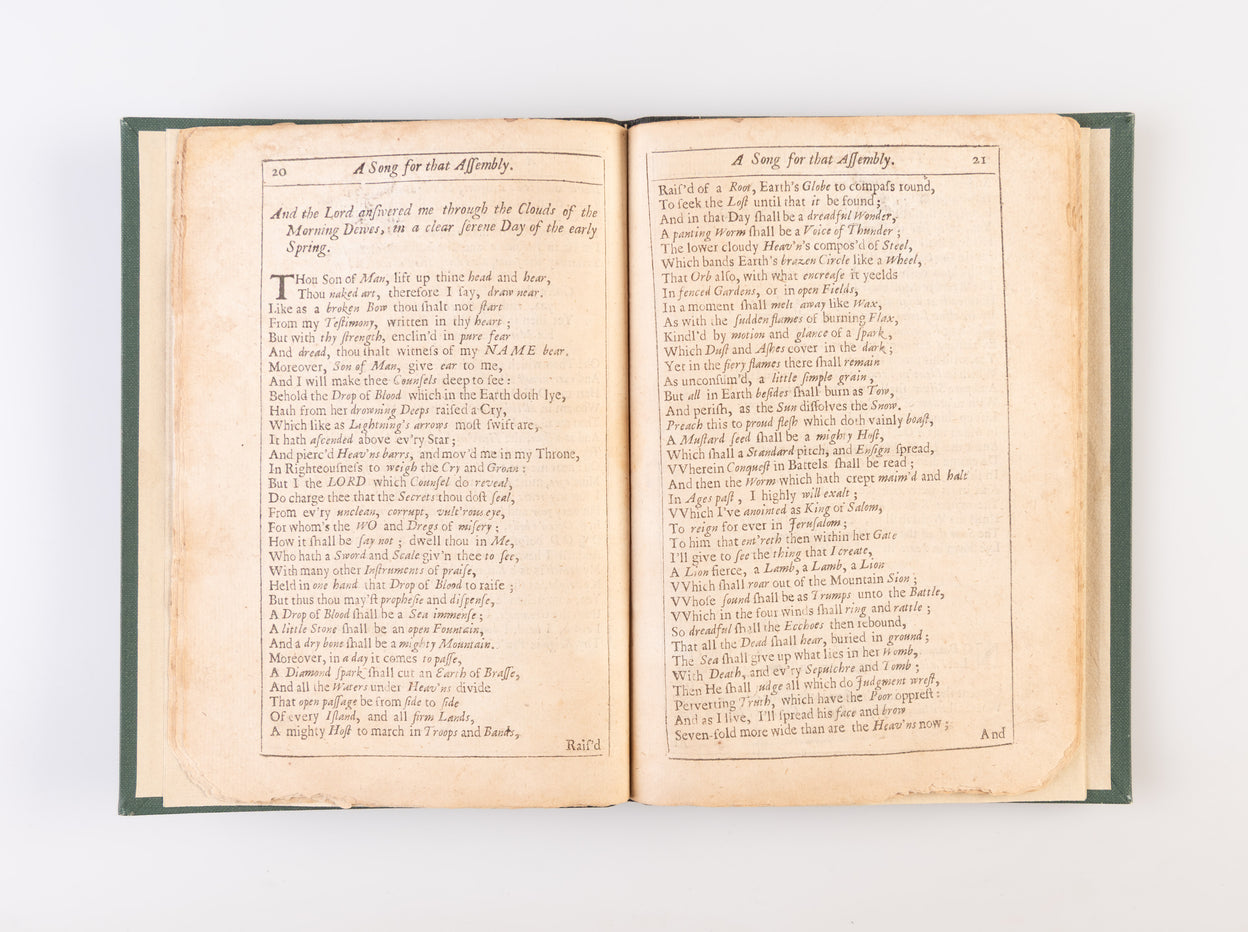 20
A Song for that Aſſembly.
And the Lord anſwered me through the Clouds of the
Morning Dewes, in a clear ſerene Day of the early
Spring.
THou Son of Man, lift up thine head and hear,
Thou naked art, therefore I ſay, draw near.
Like as a broken Bow thou ſhalt not ſtart
From my Teſtimony, written in thy heart ;
But with thy ſtrength, enclin'd in pure fear
And dread, thou ſhalt witneſs of my NAME bear.
Moreover, Son of Man, give ear to me,
And I will make thee Counſels deep to ſee :
Behold the Drop of Blood which in the Earth doth lye,
Hath from her drowning Deeps raiſed a Cry,
Which like as Lightning's arrows moſt ſwift are,
It hath aſcended above ev'ry Star ;
And pierc'd Heav'ns barrs, and mov'd me in my Throne,
In Righteouſneſs to weigh the Cry and Groan :
But I the LORD which Counſel do reveal,
Do charge thee that the Secrets thou doſt ſeal,
From ev'ry unclean, corrupt, vult'rous eye,
For whom's the WO and Dregs of miſery ;
How it ſhall be ſay not ; dwell thou in Me,
Who hath a Sword and Scale giv'n thee to ſee,
With many other Inſtruments of praiſe,
Held in one hand that Drop of Blood to raiſe ;
But thus thou may'ſt propheſie and diſpenſe,
A Drop of Blood ſhall be a Sea immenſe ;
A little Stone ſhall be an open Fountain,
And a dry bone ſhall be a mighty Mountain.
Moreover, in a day it comes to paſſe,
A Diamond ſpark ſhall cut an Earth of Braſſe,
And all the Waters under Heav'ns divide
That open paſſage be from ſide to ſide
Of every Iſland, and all firm Lands,
A mighty Hoſt to march in Troops and Bands,
Raiſ'd
A Song for that Aſſembly.
21
Raiſ'd of a Root, Earth's Globe to compaſs round,
To ſeek the Loſt until that it be found ;
And in that Day ſhall be a dreadful Wonder,
A panting Worm ſhall be a Voice of Thunder ;
The lower cloudy Heav'n's compos'd of Steel,
Which bands Earth's brazen Circle like a Wheel,
That Orb alſo, with what encreaſe it yeelds
In fenced Gardens, or in open Fields,
In a moment ſhall melt away like Wax,
As with the ſudden flames of burning Flax,
Kindl'd by motion and glance of a ſpark,
Which Duſt and Aſhes cover in the dark ;
Yet in the fiery flames there ſhall remain
As unconſum'd, a little ſimple grain,
But all in Earth beſides ſhall burn as Tow,
And periſh, as the Sun diſſolves the Snow.
Preach this to proud fleſh which doth vainly boaſt,
A Muſtard ſeed ſhall be a mighty Hoſt,
Which ſhall a Standard pitch, and Enſign ſpread,
VVherein Conqueſt in Battels ſhall be read ;
And then the Worm which hath crept maim'd and halt
In Ages paſt, I highly will exalt ;
VVhich I've anointed as King of Salom,
To reign for ever in Jeruſalom ;
To him that ent'reth then within her Gate
I'll give to ſee the thing that I create,
A Lion fierce, a Lamb, a Lamb, a Lion
VVhich ſhall roar out of the Mountain Sion ;
VVhoſe ſound ſhall be as Trumps unto the Battle,
VVhich in the four winds ſhall ring and rattle ;
So dreadful ſhall the Ecchoes then rebound,
That all the Dead ſhall hear, buried in ground ;
The Sea ſhall give up what lies in her Womb,
With Death, and ev'ry Sepulchre and Tomb ;
Then He ſhall judge all which do Judgment wreſt,
Perverting Truth, which have the Poor oppreſt :
And as I live, I'll ſpread his face and brow
Seven-fold more wide than are the Heav'ns now ;
And